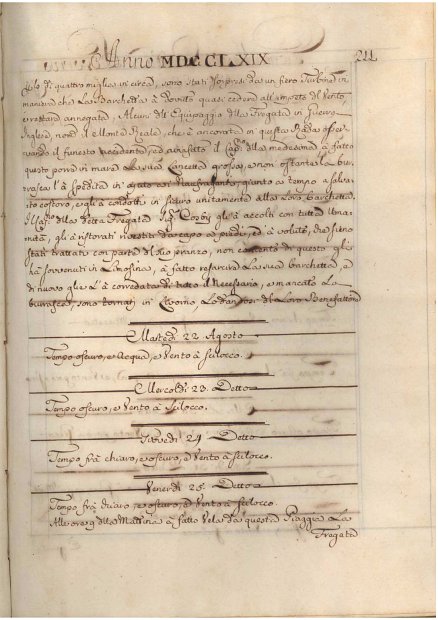 Anno MDCCLXIX
211
solo di quattro miglia in circa, sono stati sorpresi da un fiero Turbine in
maniera che La Barchetta à dovuto quasi cedere all'impeto del Vento,
e restare annegata, Alcuni del Equipaggio della Fregata in Guerra
Inglese, nom. il Monte Reale, che è ancorata in questa Rada osser-
vando il funesto accidente, ed avisatto il Cap.o della medesima à fatto
questo porre in mare La sua Lancetta grossa, e non ostante La bur-
rasca L'à spedita in ajuto dei naufraganti, giunto a tempo a salva-
re costoro, e gli à condotti in sicuro unitamente alla Loro barchetta.
Il Cap.o della detta Fregata Sig. Cosby gli à accolti con tutta Uma-
nità, gli à ristorati, rivestiti da capo a piedi, ed à voluto, che siino
stati trattati con parte del suo pranzo, non contento di questo gli
hà sovvenuti in Limosina, à fatto resarcire La sua barchetta, e
di nuovo gliel'à corredata di tutto il Necessario, e mancata La
burrasca, sono tornati in Livorno, Lodandosi del Loro Benefattore
Martedì 22. Agosto
Tempo oscuro, e Acqua, e Vento à Scilocco.
Mercoldì 23. Detto
Tempo oscuro, e Vento à Scilocco.
Giovedì 24. Detto
Tempo frà chiaro, e oscuro, e Vento à Scilocco.
Venerdì 25. Detto
Tempo frà chiaro, e oscuro, e Vento à Scilocco.
Alle ore 9 della Mattina à fatto Vela da questa Piaggia La
Fregata